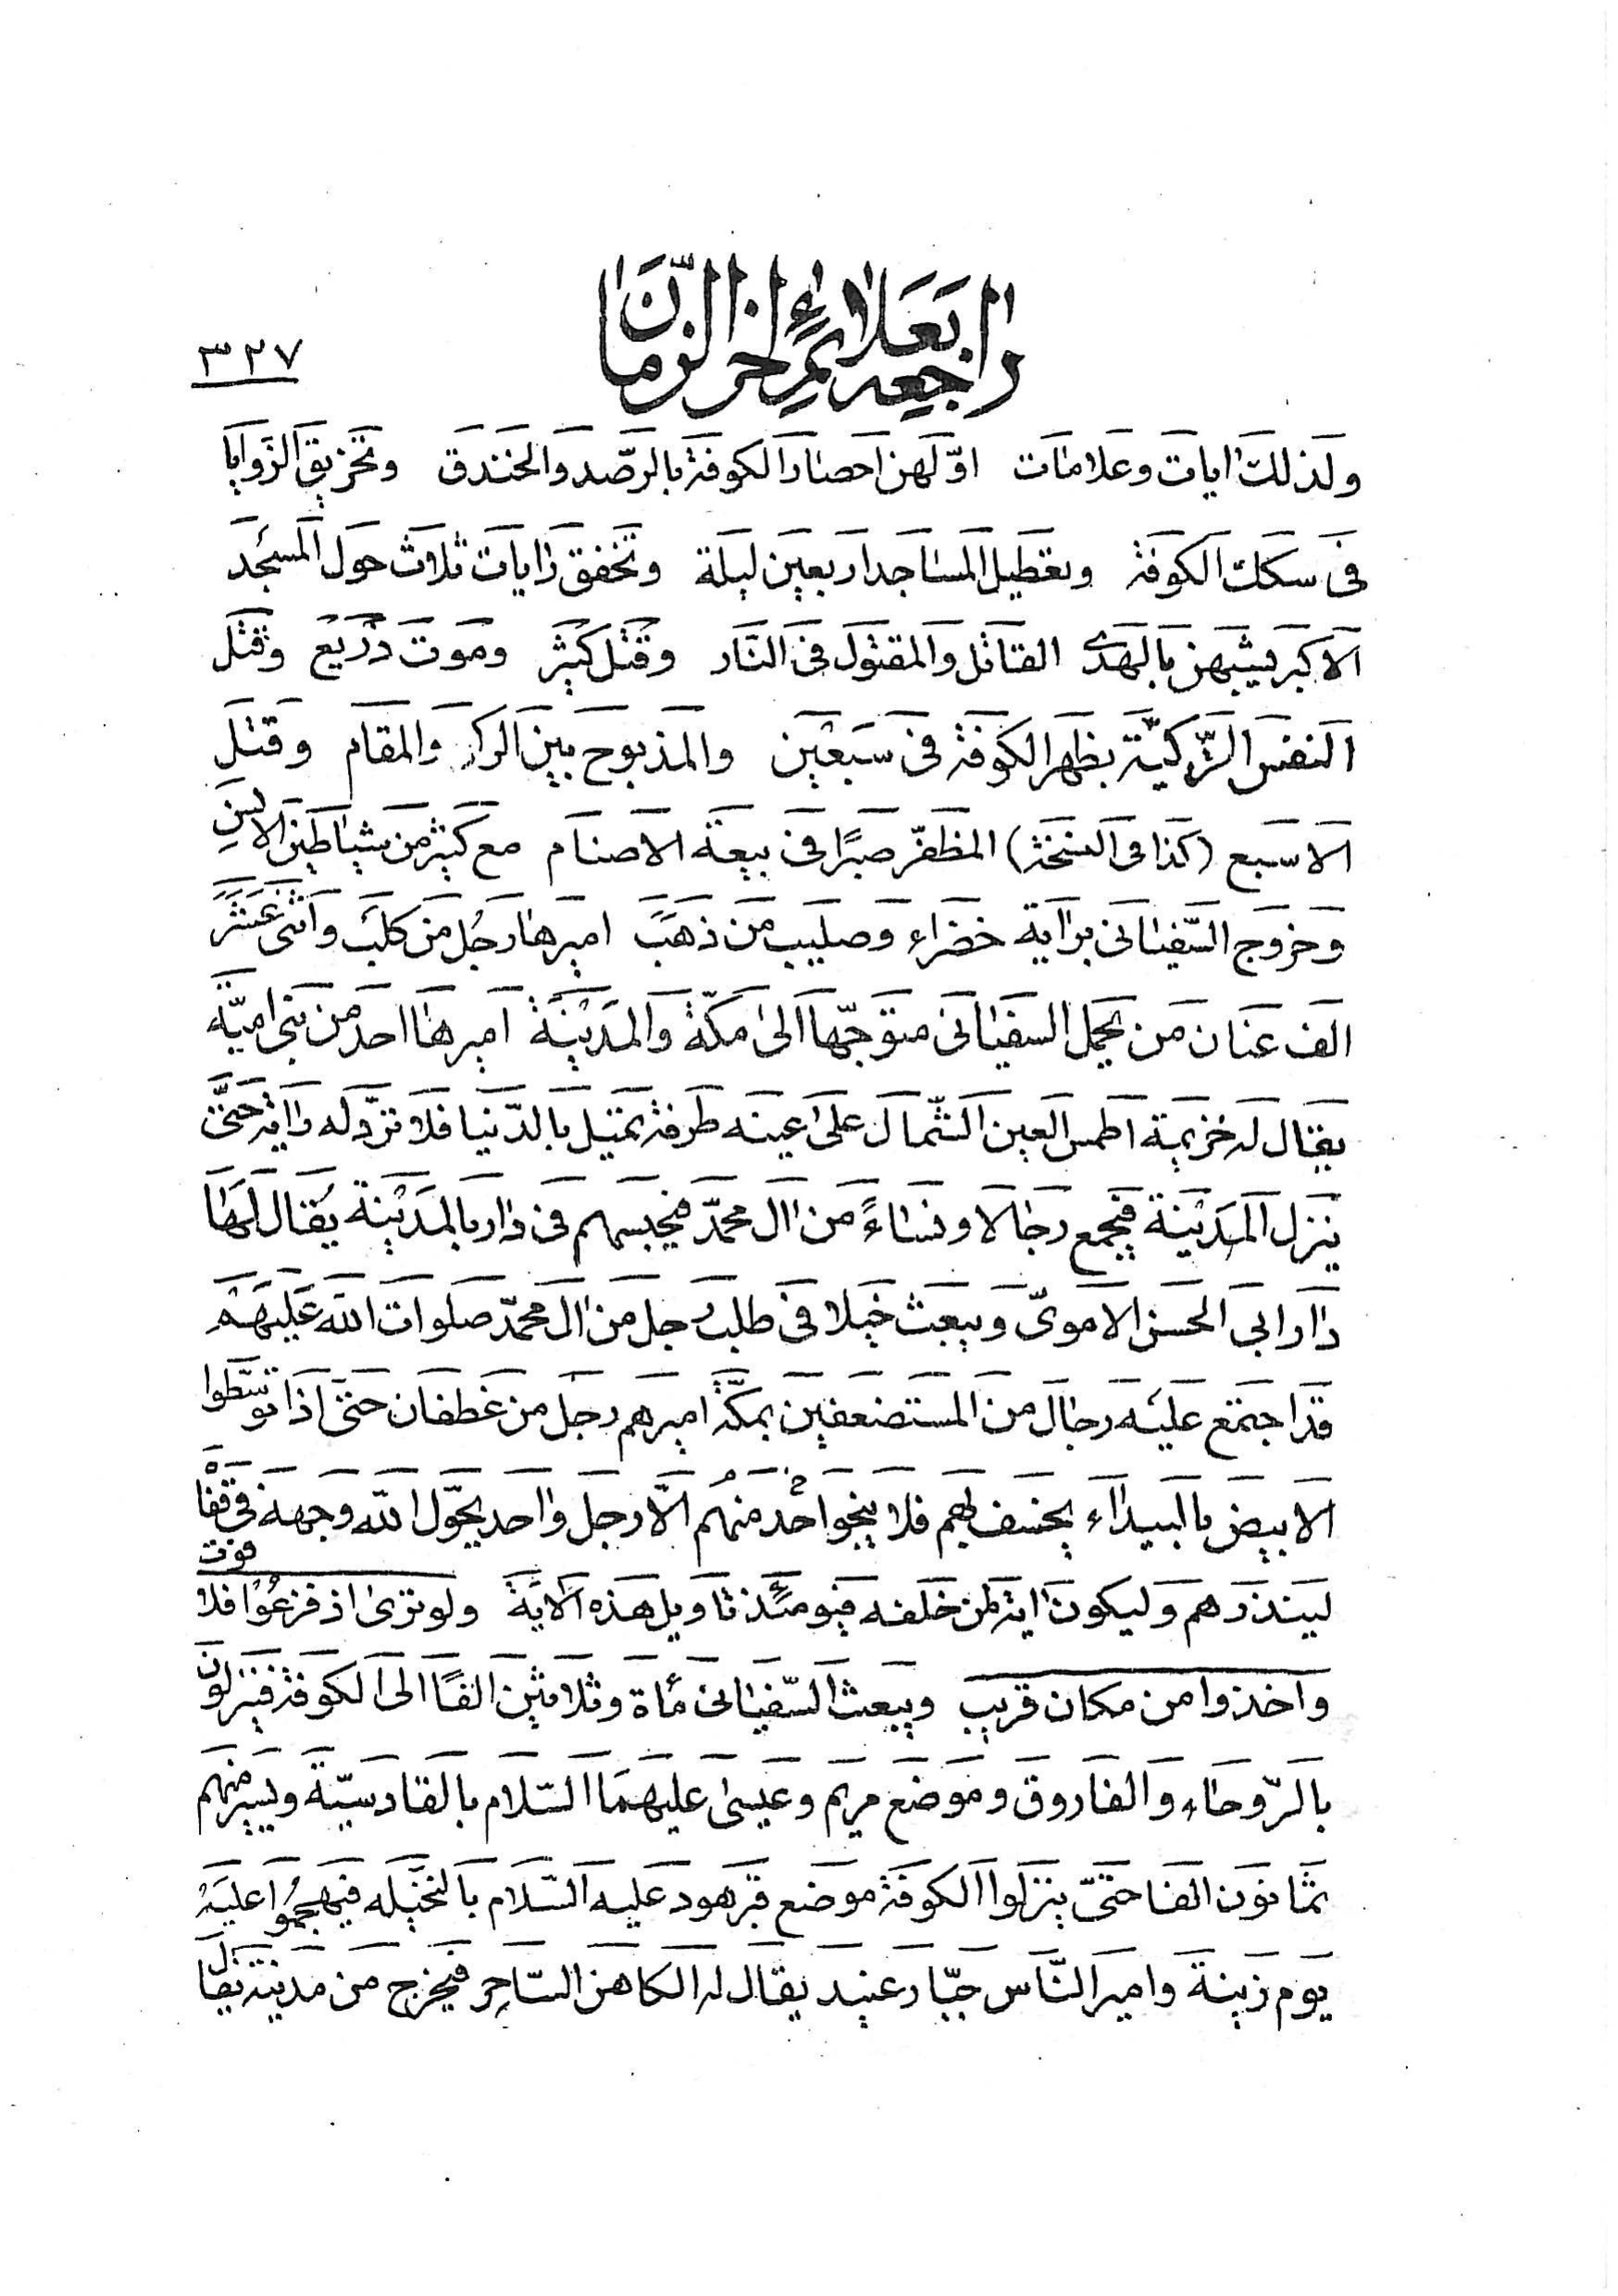 راجع بعلائم اٰخر الزّمان
٣٢٧
ولذلك ايات وعلامات اوّلهن احصار الكوفة بالرّصد والخندق وتخريق الزوايا
فى سكك الكوفة وتعطيل المساجد اربعين ليلة وتخفق رايات ثلاث حول المسجد
الاكبر يشبهن بالهدى القاتل والمقتول فى النّار وقتل كثير وموت ذريع وقتل
النفس الزّكيّة بظهر الكوفة فى سبعين والمذبوح بين الركن والمقام وقتل
الاسبع (كذا فى النسخة) المظفّر صبرًا فى بيعة الاصنام مع كثير من شياطين الانس
وخروج السّفيانى براية خضراء وصليب من ذهب اميرها رجل من كلب واثنى عشر
الف عنان من يحمل السفيانى متوجّها الى مكّة والمدينة اميرها احد من بنى اميّة
يقال له خزيمة اطمس العين الشّمال على عينه طرفة تميل بالدّنيا فلا تردّ له راية حتّى
ينزل المدينة فيجمع رجالا ونساءً من اٰل محمّد فيحبسهم فى دار بالمدينة يقال لها
دار ابى الحسن الاموىّ ويبعث خيلا فى طلب رجل من اٰل محمّد صلوات الله عليهم
قد اجتمع عليه رجال من المستضعفين بمكّة اميرهم رجل من غطفان حتى اذا توسّطوا
الابيض بالبيداء يخسف بهم فلا ينجو احد منهم الّا رجل واحد يحوّل الله وجهه فى قفاه
لينذرهم وليكون اية لمن خلفه فيومئذ تاويل هذه الاية ولو ترى اذ فزعوا فلا فوت
واخذوا من مكان قريب ويبعث السّفيانى مأة وثلاثين الفًا الى الكوفة فينزلون
بالرّوحاء والفاروق وموضع مريم وعيسى عليهما السّلام بالقادسيّة ويسير منهم
ثمانون الفا حتىّ ينزلوا الكوفة موضع قبر هود عليه السّلام بالنخيله فيهجموا عليه
يوم زينة وامير النّاس جبّار عنيد يقال له الكاهن السّاحر فيخرج من مدينة يقال